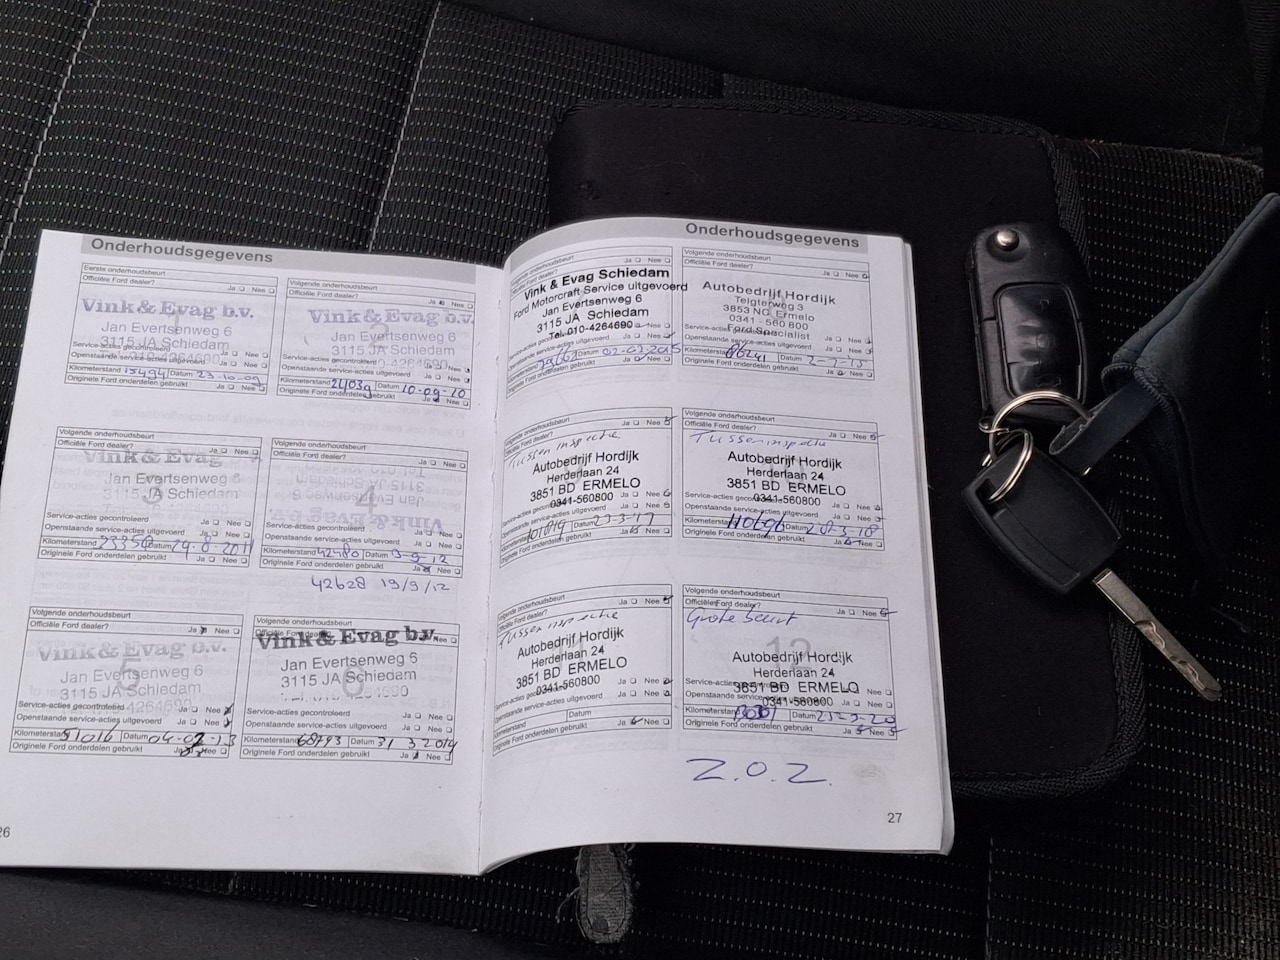 Onderhoudsgegevens
Eerste onderhoudsbeurt
Officiële Ford dealer? Ja Nee
Vink & Evag b.v.
Jan Evertsenweg 6
3115 JA Schiedam
Service-acties gecontroleerd Ja Nee
Openstaande service-acties uitgevoerd Ja Nee
Kilometerstand 15494 Datum 23-10-09
Originele Ford onderdelen gebruikt Ja Nee
Ja Nee
2
Vink & Evag b.v.
Jan Evertsenweg 6
3115 JA Schiedam
Service-acties gecontroleerd
Openstaande service-acties uitgevoerd Ja Nee
Kilometerstand 24039 Datum 10-09-10
Originele Ford onderdelen gebruikt Ja Nee
Volgende onderhoudsbeurt
Officiële Ford dealer? Ja Nee
Vink & Evag
3
Jan Evertsenweg 6
3115 JA Schiedam
Service-acties gecontroleerd Ja Nee
Openstaande service-acties uitgevoerd Ja Nee
Kilometerstand Datum 24-8-2011
Originele Ford onderdelen gebruikt Ja Nee
Volgende onderhoudsbeurt
Officiële Ford dealer? Ja Nee
3115 JA Schiedam
Jan Evertsenweg 6
4
Vink & Evag b.v.
Service-acties gecontroleerd Ja Nee
Openstaande service-acties uitgevoerd Ja Nee
Kilometerstand 42480 Datum
Originele Ford onderdelen gebruikt Ja Nee
42628 19/9/12
Volgende onderhoudsbeurt
Officiële Ford dealer? Ja Nee
Vink & Evag b.v.
5
Jan Evertsenweg 6
3115 JA Schiedam
Service-acties gecontroleerd Ja Nee
Openstaande service-acties uitgevoerd Ja Nee
Kilometerstand 51016 Datum
Originele Ford onderdelen gebruikt Ja Nee
Volgende onderhoudsbeurt
Officiële Ford dealer? Nee
Vink & Evag b.v.
Jan Evertsenweg 6
6
3115 JA Schiedam
Service-acties gecontroleerd Ja Nee
Openstaande service-acties uitgevoerd Ja Nee
Kilometerstand Datum 31 3 2014
Originele Ford onderdelen gebruikt Ja Nee
26
Onderhoudsgegevens
Volgende onderhoudsbeurt
Ja Nee
Vink & Evag Schiedam
Ford Motorcraft Service uitgevoerd
Jan Evertsenweg 6
3115 JA Schiedam
Tel. 010-4264690
Service-acties gecontroleerd Nee
Openstaande service-acties uitgevoerd Ja Nee
Kilometerstand Datum 02-02-2015
Originele Ford onderdelen gebruikt Ja Nee
Volgende onderhoudsbeurt
Officiële Ford dealer? Ja Nee
Autobedrijf Hordijk
Telgterweg 3
3853 NG Ermelo
0341 - 560 800
Ford Specialist
Service-acties gecontroleerd Ja Nee
Openstaande service-acties uitgevoerd Ja Nee
Kilometerstand 86241 Datum
Originele Ford onderdelen gebruikt Ja Nee
Volgende onderhoudsbeurt Ja Nee
Officiële Ford dealer?
Tusseninspectie
Autobedrijf Hordijk
Herderlaan 24
3851 BD ERMELO
0341-560800
Service-acties gecontroleerd Ja Nee
Openstaande service-acties uitgevoerd Ja Nee
Kilometerstand 101819 Datum 23-3-17
Originele Ford onderdelen gebruikt Ja Nee
Volgende onderhoudsbeurt
Officiële Ford dealer? Ja Nee
Tusseninspectie
Autobedrijf Hordijk
Herderlaan 24
3851 BD ERMELO
0341-560800
Service-acties gecontroleerd Ja Nee
Openstaande service-acties uitgevoerd Ja Nee
Kilometerstand 110696 Datum 28-3-18
Originele Ford onderdelen gebruikt Ja Nee
Volgende onderhoudsbeurt Ja Nee
Officiële Ford dealer?
Tusseninspectie
Autobedrijf Hordijk
Herderlaan 24
3851 BD ERMELO
0341-560800
Service-acties gecontroleerd Ja Nee
Openstaande service-acties uitgevoerd Ja Nee
Kilometerstand Datum
Originele Ford onderdelen gebruikt Ja Nee
Volgende onderhoudsbeurt
Officiële Ford dealer? Ja Nee
Grote beurt
12
Autobedrijf Hordijk
Herderlaan 24
3851 BD ERMELO
0341-560800
Service-acties gecontroleerd Ja Nee
Openstaande service-acties uitgevoerd Ja Nee
Kilometerstand Datum 23-3-20
Originele Ford onderdelen gebruikt Ja Nee
Z.O.Z.
27